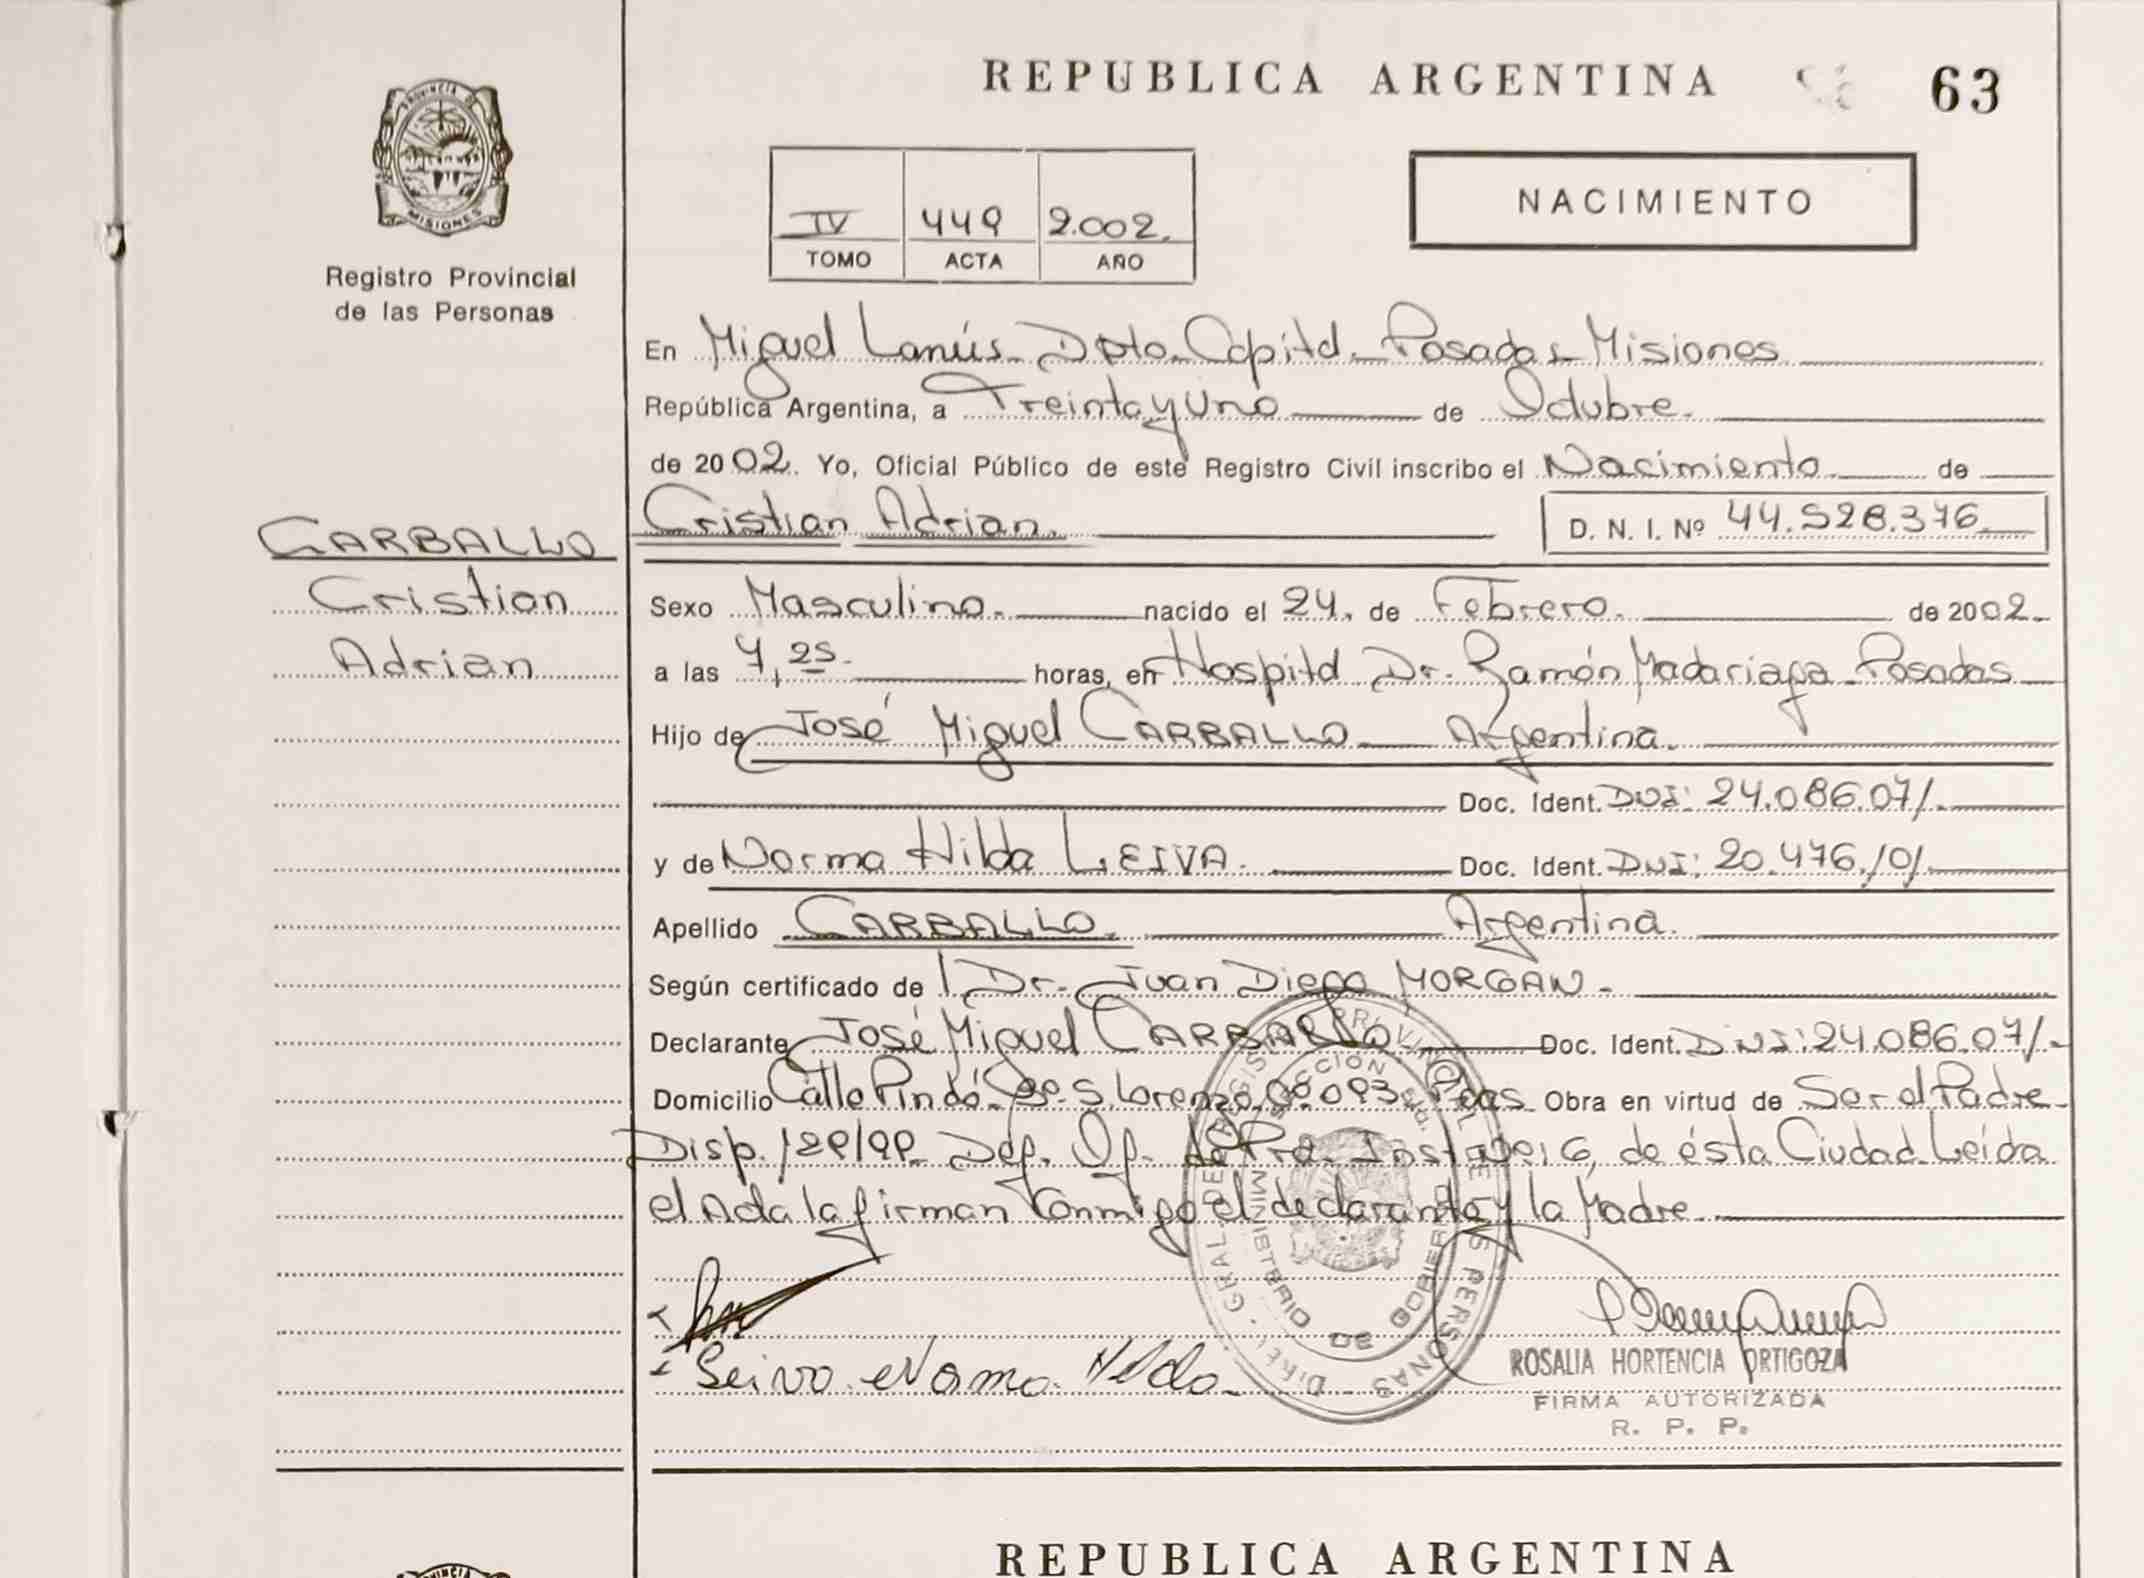 REPUBLICA ARGENTINA 63
PROVINCIA DE
MISIONES
Registro Provincial
de las Personas
IV 449 2.002.
TOMO ACTA AÑO
NACIMIENTO
En Miguel Lanús Dpto. Capital. Posadas Misiones
República Argentina, a Treinta y Uno de Octubre.
de 2002. Yo, Oficial Público de este Registro Civil inscribo el Nacimiento de
CARBALLO
Cristian
Adrian
Cristian Adrian. D. N. I. Nº 44.528.376
Sexo Masculino. nacido el 24. de Febrero. de 2002.
a las 4,25. horas, en Hospital Dr. Ramón Madariaga Posadas
Hijo de José Miguel CARBALLO Argentina.
Doc. Ident. DNI: 24.086.071.
y de Norma Hilda LEIVA. Doc. Ident. DNI: 20.476.101.
Apellido CARBALLO. Argentina.
Según certificado de l Dr. Juan Diego MORGAN.
Declarante José Miguel CARBALLO. Doc. Ident. DNI: 24.086.071.
Domicilio Calle Pindó S. Lorenzo Pdas Obra en virtud de Ser el Padre
Disp. 129/99 Def. Of. de Pra. Inst. 6, de ésta Ciudad. Leída
el Acta la firman Conmigo el declarante y la Madre.
Leiva Norma Hilda
ROSALIA HORTENCIA ORTIGOZA
FIRMA AUTORIZADA
R. P. P.
MINISTERIO DE GOBIERNO
REPUBLICA ARGENTINA